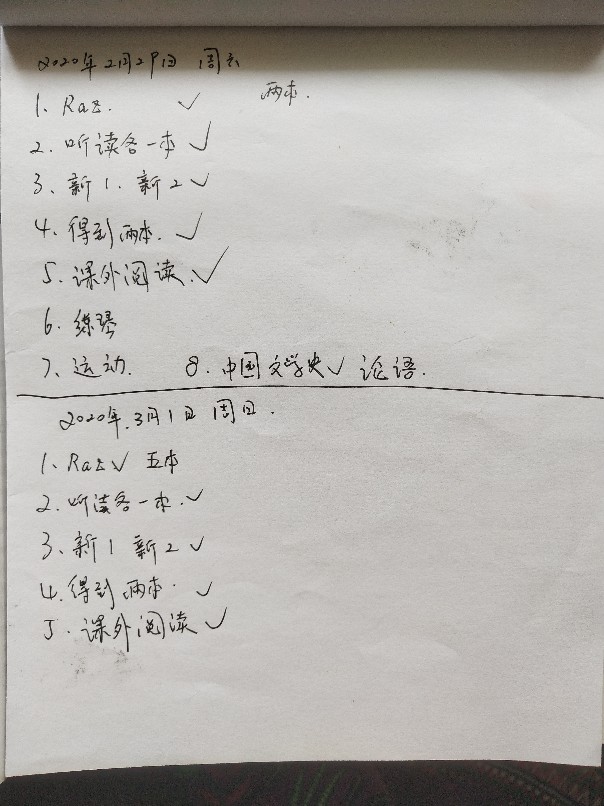 2020年2月29日 周六
1、Raz. ✓ 两本.
2、听读各一本 ✓
3、新1、新2 ✓
4、得到两本. ✓
5、课外阅读. ✓
6、练琴
7、运动. 8.中国文学史 ✓ 论语.
2020年.3月1日 周日.
1、Raz ✓ 五本
2、听读各一本. ✓
3、新1 新2 ✓
4.得到两本. ✓
5.课外阅读 ✓